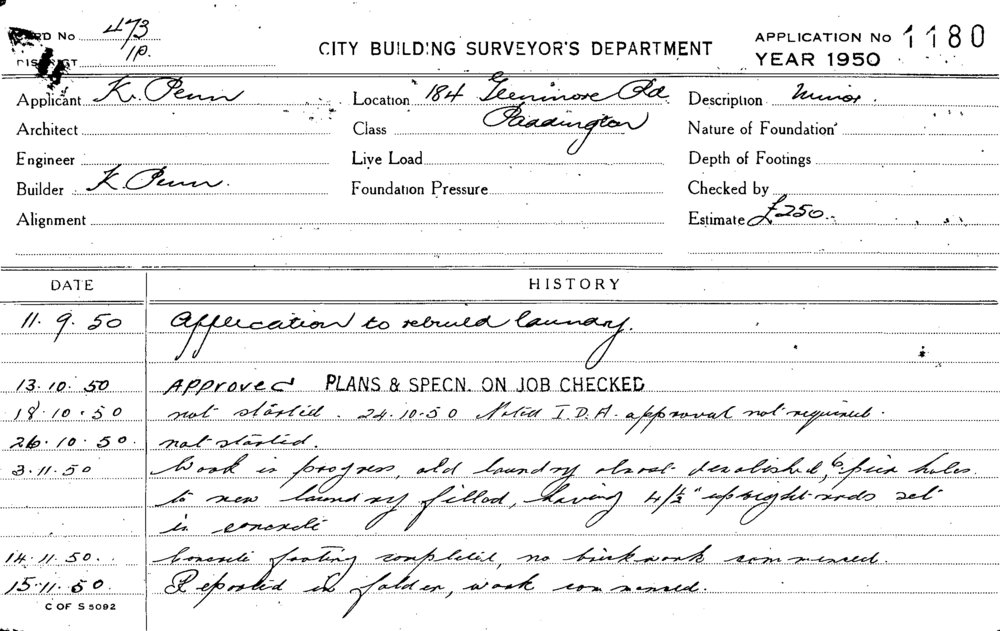 CARD No 473
DISTRICT 1P.
CITY BUILDING SURVEYOR'S DEPARTMENT
APPLICATION No 1180
YEAR 1950
Applicant K. Penn
Location 184 Glenmore Rd.
Paddington
Description Minor.
Architect
Class
Nature of Foundation
Engineer
Live Load
Depth of Footings
Builder K. Penn.
Foundation Pressure
Checked by
Alignment
Estimate £250.
DATE HISTORY
11.9.50 Application to rebuild laundry.
13.10.50 APProveD PLANS & SPECN. ON JOB CHECKED
18.10.50 not started. 24.10.50 Noted I.D.A. approval not required.
26.10.50. not started.
3.11.50 Work in progress, old laundry almost demolished, 6 pier holes
to new laundry filled, having 4/½" upright rods set
in concrete
14.11.50. Concrete footing completed, no brickwork commenced.
15.11.50. Reported in folder, work commenced.
C OF S 5092